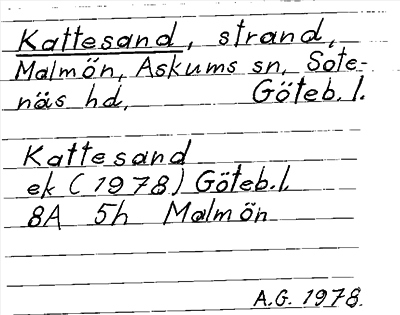 Kattesand, strand,
Malmön, Askums sn, Sote-
näs hd, Göteb. l.
Kattesand
ek (1978) Göteb. l.
8A 5h Malmön
A.G. 1978.